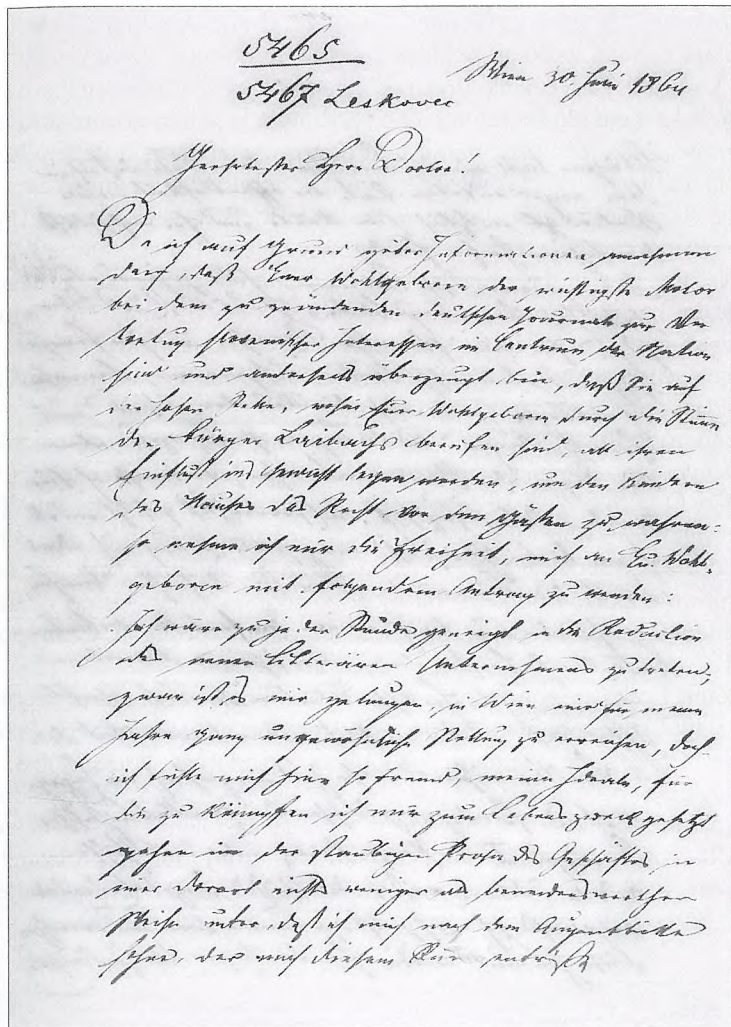 5465
5467 Leskovec
Wien 30. Juni 1864
Geehrtester Herr Doctor!
Da ich auf Grund guter Informationen annehmen
darf, daß Euer Wohlgeboren der wichtigste Motor
bei dem zu gründenden deutschen Journale zur Ver
tretung slovenischer Interessen im Centrum der Nation
sind und anderseits überzeugt bin, daß Sie auf
der hohen Stelle, wohin Euer Wohlgeboren durch die Stimme
der Bürger Laibachs berufen sind, all ihren
Einfluß ins Gewicht legen werden, um den Kindern
des Hauses das Recht vor den Gästen zu wahren:
so nehme ich mir die Freiheit, mich an Eu. Wohl-
geboren mit folgendem Antrag zu wenden:
Ich wäre zu jeder Stunde geneigt in die Redaction
des neuen litterären Unternehmens zu treten,
zwar ist es mir gelungen, in Wien eine für meine
Jahre ganz ungewöhnliche Stellung zu erreichen, doch
ich fühle mich hier so fremd, meine Ideale, für
die zu kämpfen ich mir zum Lebenszweck gesetzt
gehen in der staubigen Prosa des Geschäftes in
einer derart nichts weniger als beneidenswerthen
Weise unter, daß ich mich nach dem Augenblicke
sehne, der mich diesem entrißt